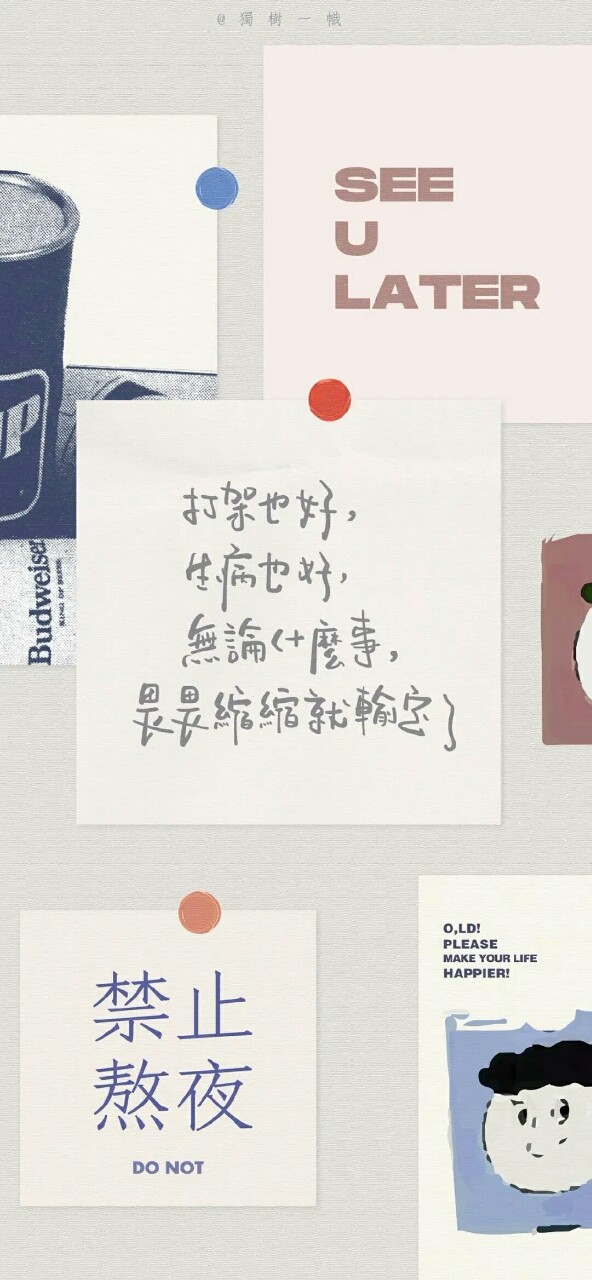 @獨樹一幟
SEE
U
LATER
UP
Budweiser
KING OF BEERS
打架也好，
生病也好，
無論什麼事，
畏畏縮縮就輸定了
O,LD!
PLEASE
MAKE YOUR LIFE
HAPPIER!
禁止
熬夜
DO NOT